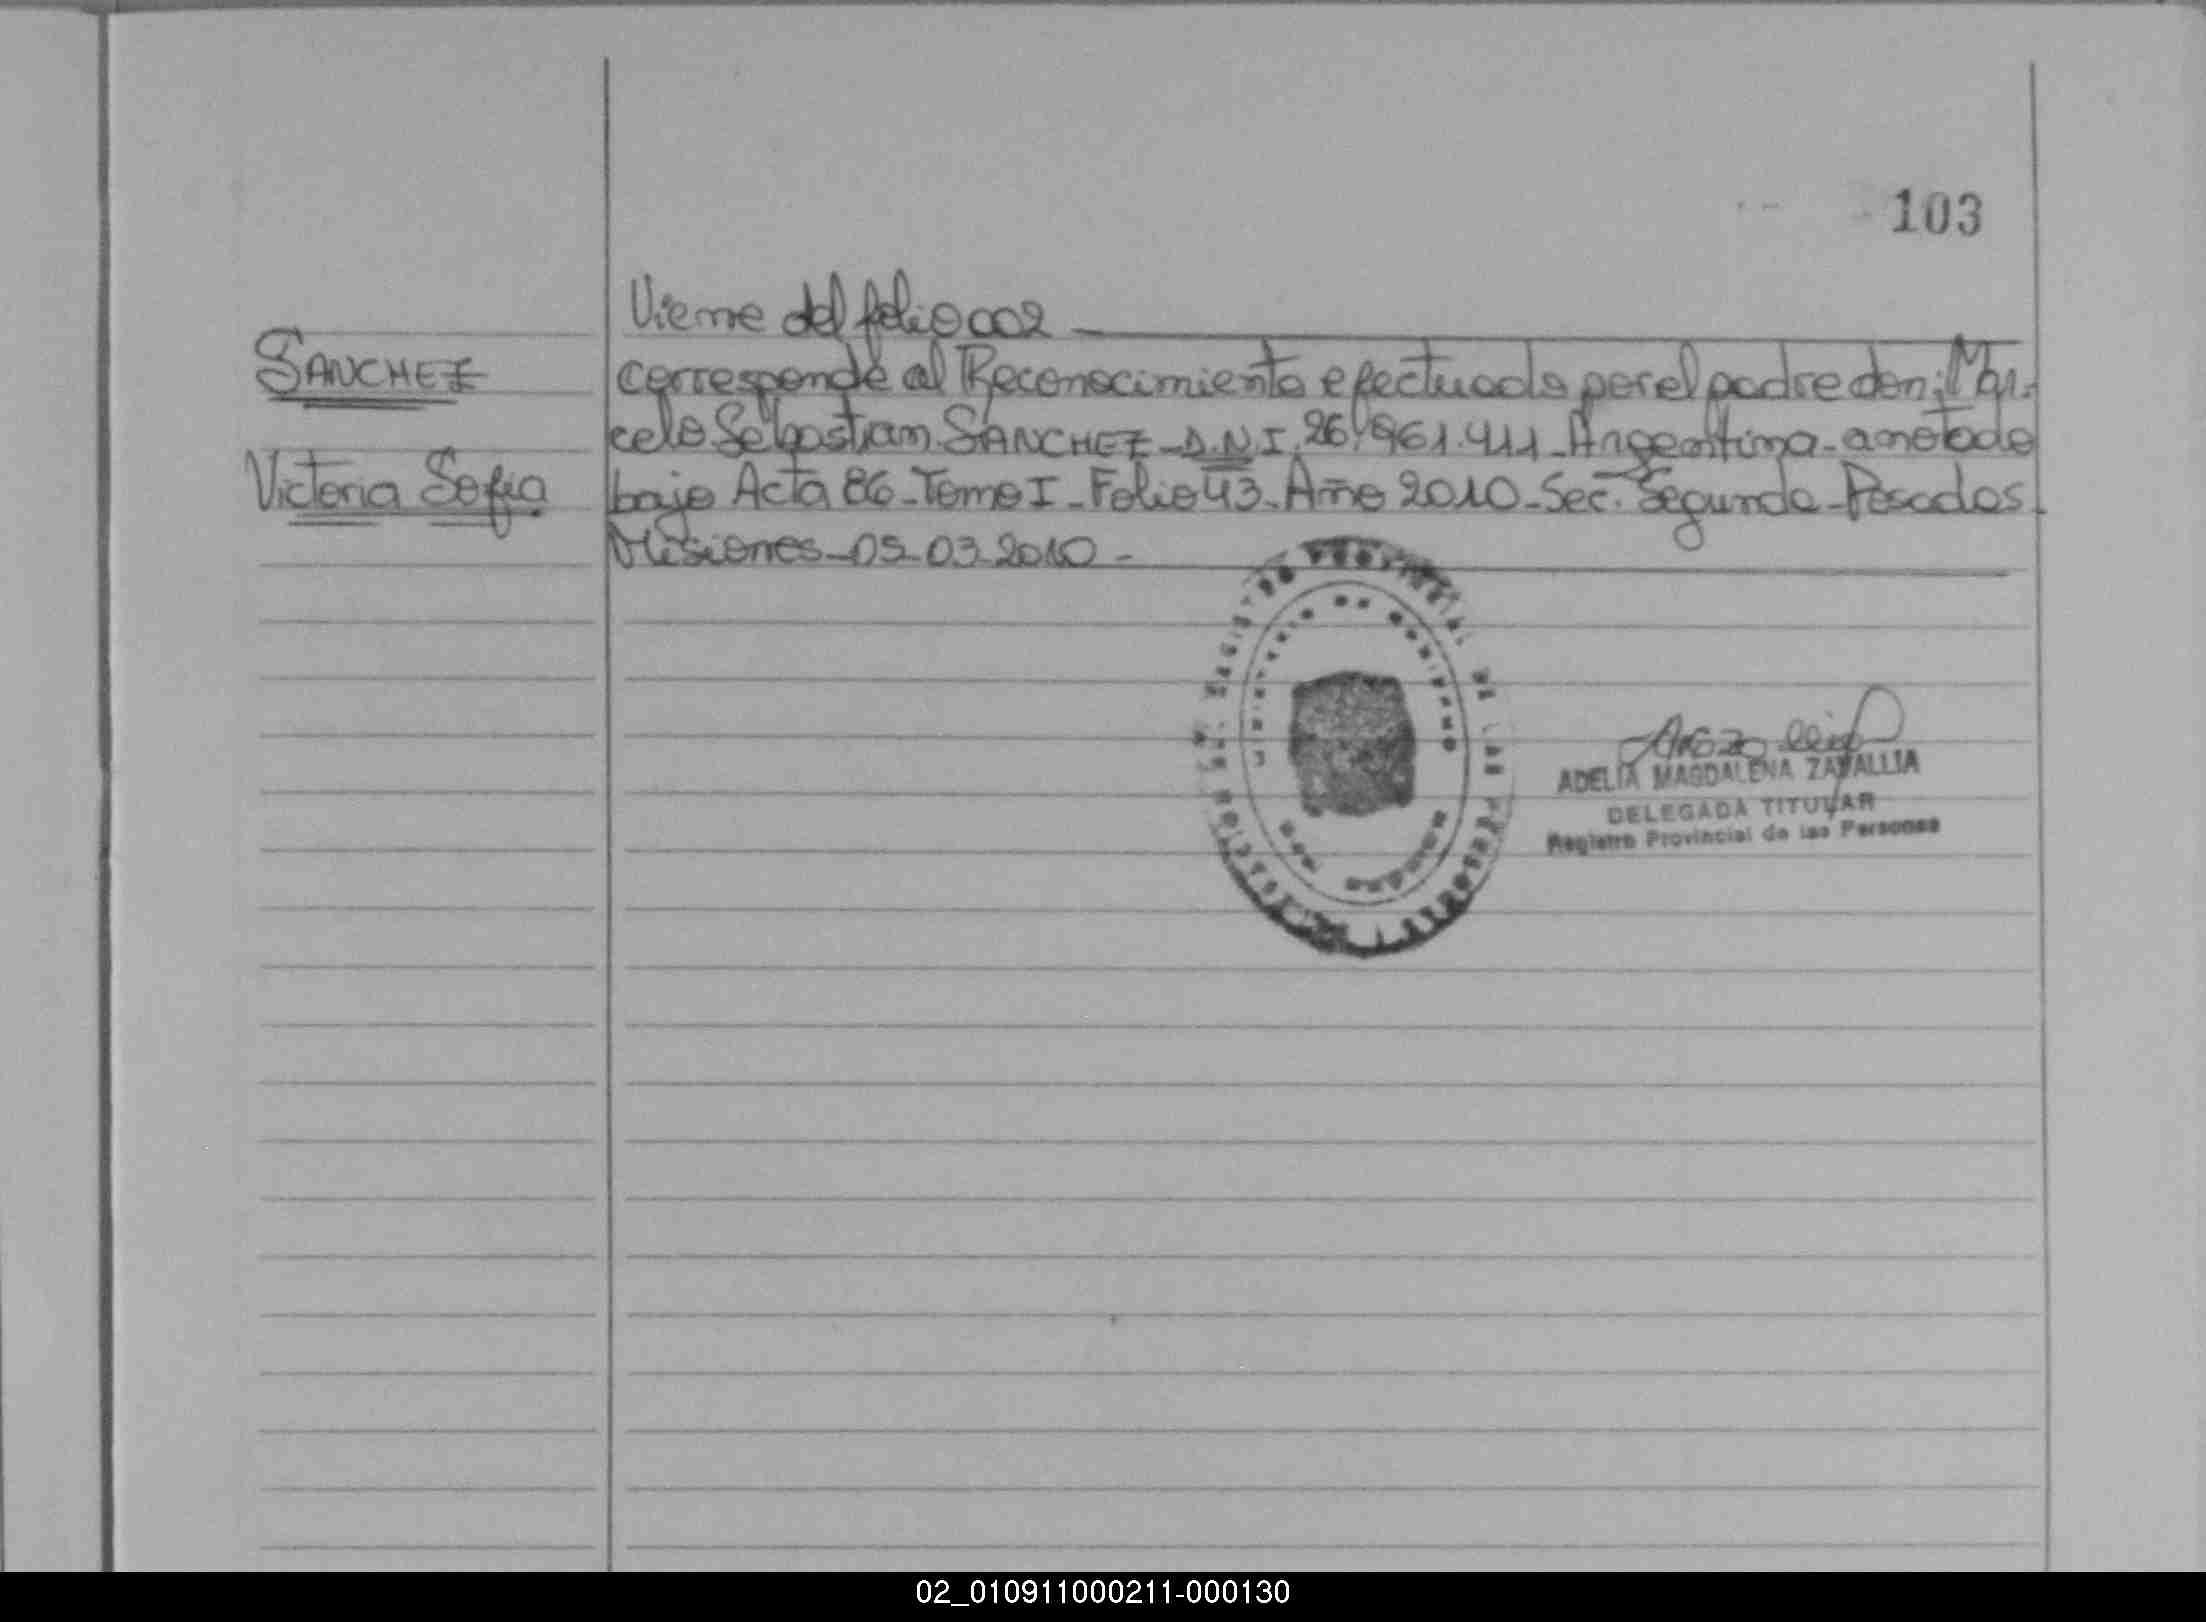 103
Viene del folio 002
SANCHEZ
Victoria Sofia
corresponde al Reconocimiento efectuado por el padre don: Mar-
celo Sebastian SANCHEZ - D.N.I. 26.961.411 - Argentina - anotado
bajo Acta 86 - Tomo I - Folio 43 - Año 2010 - Sec. Segunda - Posadas
Misiones - 05-03-2010 -
REGISTRO PROVINCIAL DE LAS PERSONAS
MINISTERIO DE GOBIERNO
ADELIA MAGDALENA ZAVALLIA
DELEGADA TITULAR
Registro Provincial de las Personas
02_010911000211-000130